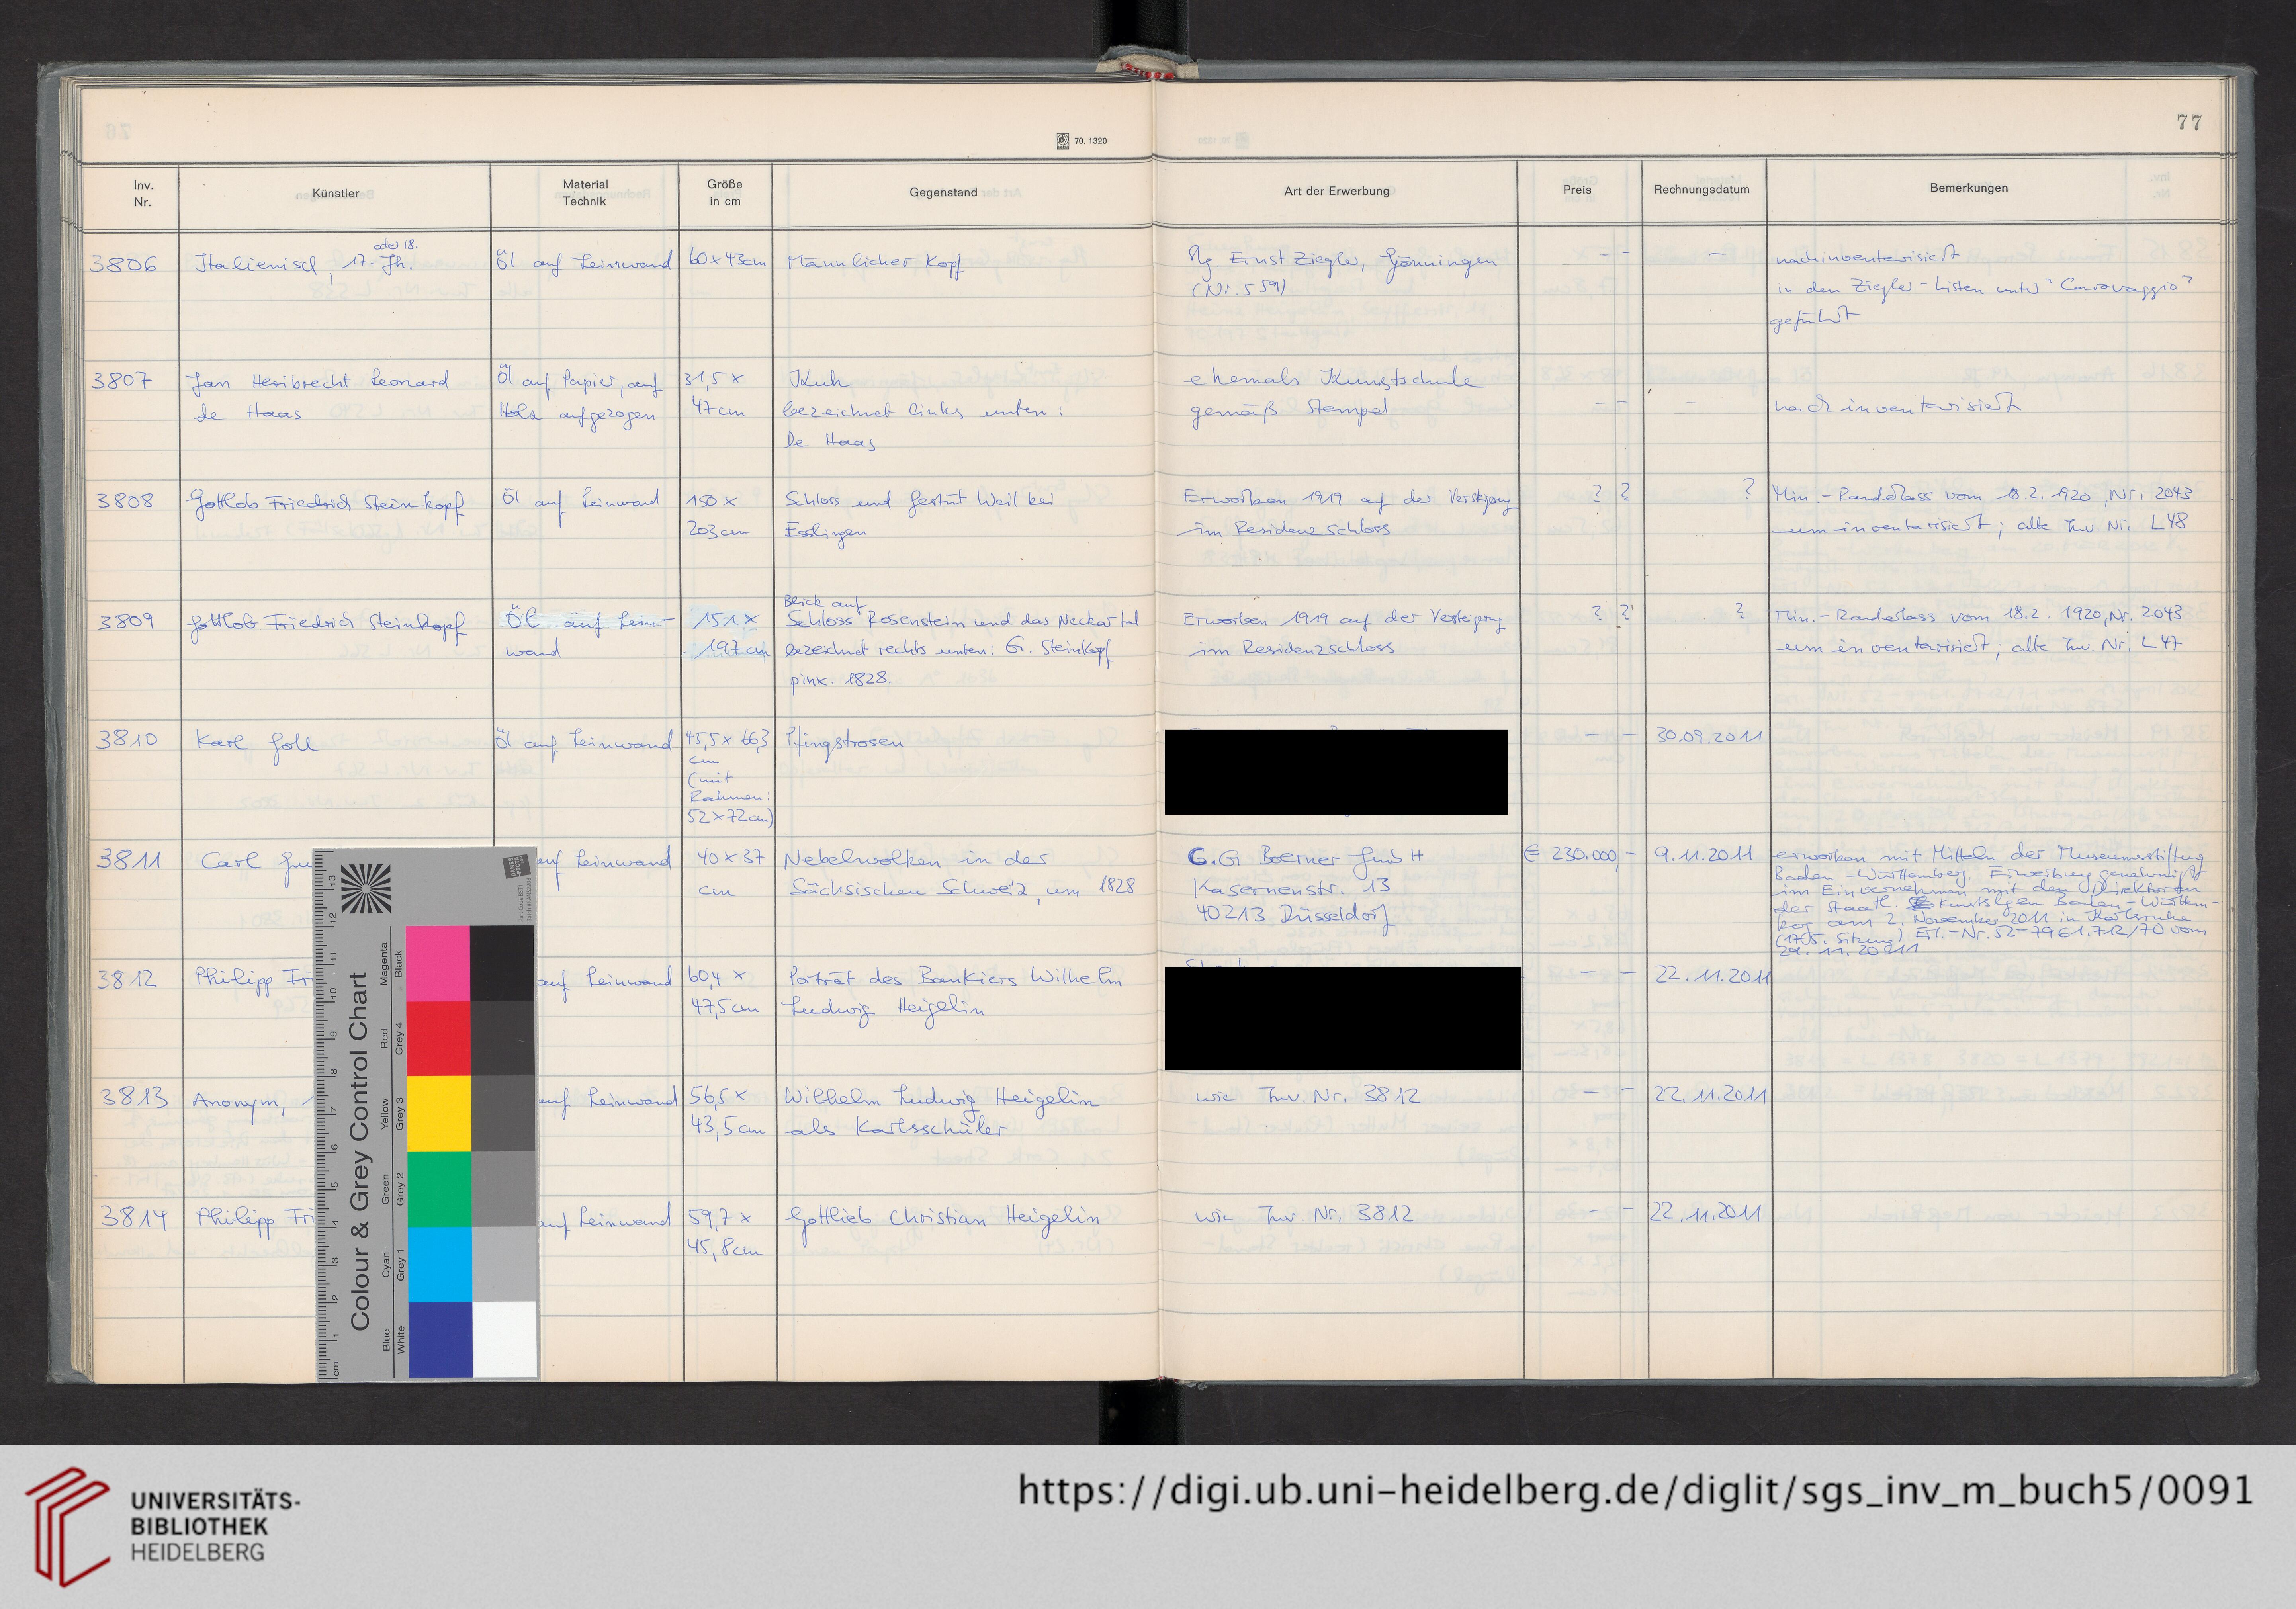 77
70. 1320
Inv. Nr.
Künstler
Material Technik
Größe in cm
Gegenstand
Art der Erwerbung
Preis
Rechnungsdatum
Bemerkungen
3806
Italienisch, 17. oder 18. Jh.
Öl auf Leinwand
60 x 43cm
Männlicher Kopf
Slg. Ernst Ziegler, Gönningen
(Nr. 559)
- -
-
nachinventarisiert
in den Ziegler-Listen unter "Caravaggio"
geführt
3807
Jan Heribrecht Leonard
de Haas
Öl auf Papier, auf
Holz aufgezogen
31,5 x
47cm
Kuh
bezeichnet links unten:
De Haas
ehemals Kunstschule
gemäß Stempel
- -
-
nachinventarisiert
3808
Gottlob Friedrich Steinkopf
Öl auf Leinwand
150 x
203cm
Schloss und Gestüt Weil bei
Esslingen
Erworben 1919 auf der Versteigerung
im Residenzschloss
? ?
?
Min.-Randerlass vom 18.2.1920, Nr. 2043
uminventarisiert; alte Inv. Nr. L48
3809
Gottlob Friedrich Steinkopf
Öl auf Lein-
wand
151 x
197cm
Blick auf
Schloss Rosenstein und das Neckartal
bezeichnet rechts unten: G. Steinkopf
pinx. 1828.
Erworben 1919 auf der Versteigerung
im Residenzschloss
? ?
?
Min.-Randerlass vom 18.2.1920, Nr. 2043
uminventarisiert; alte Inv. Nr. L47
3810
Karl Goll
Öl auf Leinwand
45,5 x 66,3
cm
(mit
Rahmen:
52x72cm)
Pfingstrosen
- -
30.09.2011
3811
Carl
auf Leinwand
40 x 37
cm
Nebelwolken in der
Sächsischen Schweiz, um 1828
C.G. Boerner GmbH
Kasernenstr. 13
40213 Düsseldorf
€ 230.000,-
9.11.2011
erworben mit Mitteln der Museumsstiftung
Baden-Württemberg. Erwerbung genehmigt
im Einvernehmen mit den Direktoren
der Staatl. Kunstslgen Baden-Württem-
berg am 2. November 2011 in Karlsruhe
(1705. Sitzung) Erl.-Nr. 52-7961.712/70 vom
29.11.2011
3812
Philipp Fri
auf Leinwand
60,4 x
47,5cm
Porträt des Bankiers Wilhelm
Ludwig Heigelin
- -
22.11.2011
3813
Anonym,
auf Leinwand
56,5 x
43,5cm
Wilhelm Ludwig Heigelin
als Karlsschüler
wie Inv. Nr. 3812
- -
22.11.2011
3814
Philipp Fri
auf Leinwand
59,7 x
45,8cm
Gottlieb Christian Heigelin
wie Inv. Nr. 3812
- -
22.11.2011
Colour & Grey Control Chart
Blue Cyan Green Yellow Red Magenta
White Grey 1 Grey 2 Grey 3 Grey 4 Black
cm 1 2 3 4 5 6 7 8 9 10 11 12 13
UNIVERSITÄTS-
BIBLIOTHEK
HEIDELBERG
https://digi.ub.uni-heidelberg.de/diglit/sgs_inv_m_buch5/0091